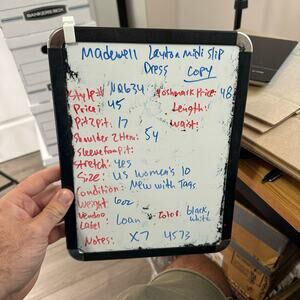 BANKERS BOX
Madewell Layton Midi Slip
Dress copy
Style# NQ634 Poshmark Price: 48
Price: 45 Length:
Pit2Pit: 17 Waist:
Shoulder 2 Hem: 54
Sleeve from pit:
Stretch: yes
Size: US Women's 10
Condition: New with Tags
Weight 6oz
Vendoo Label Loan Color: black, white
Notes: X7 4573